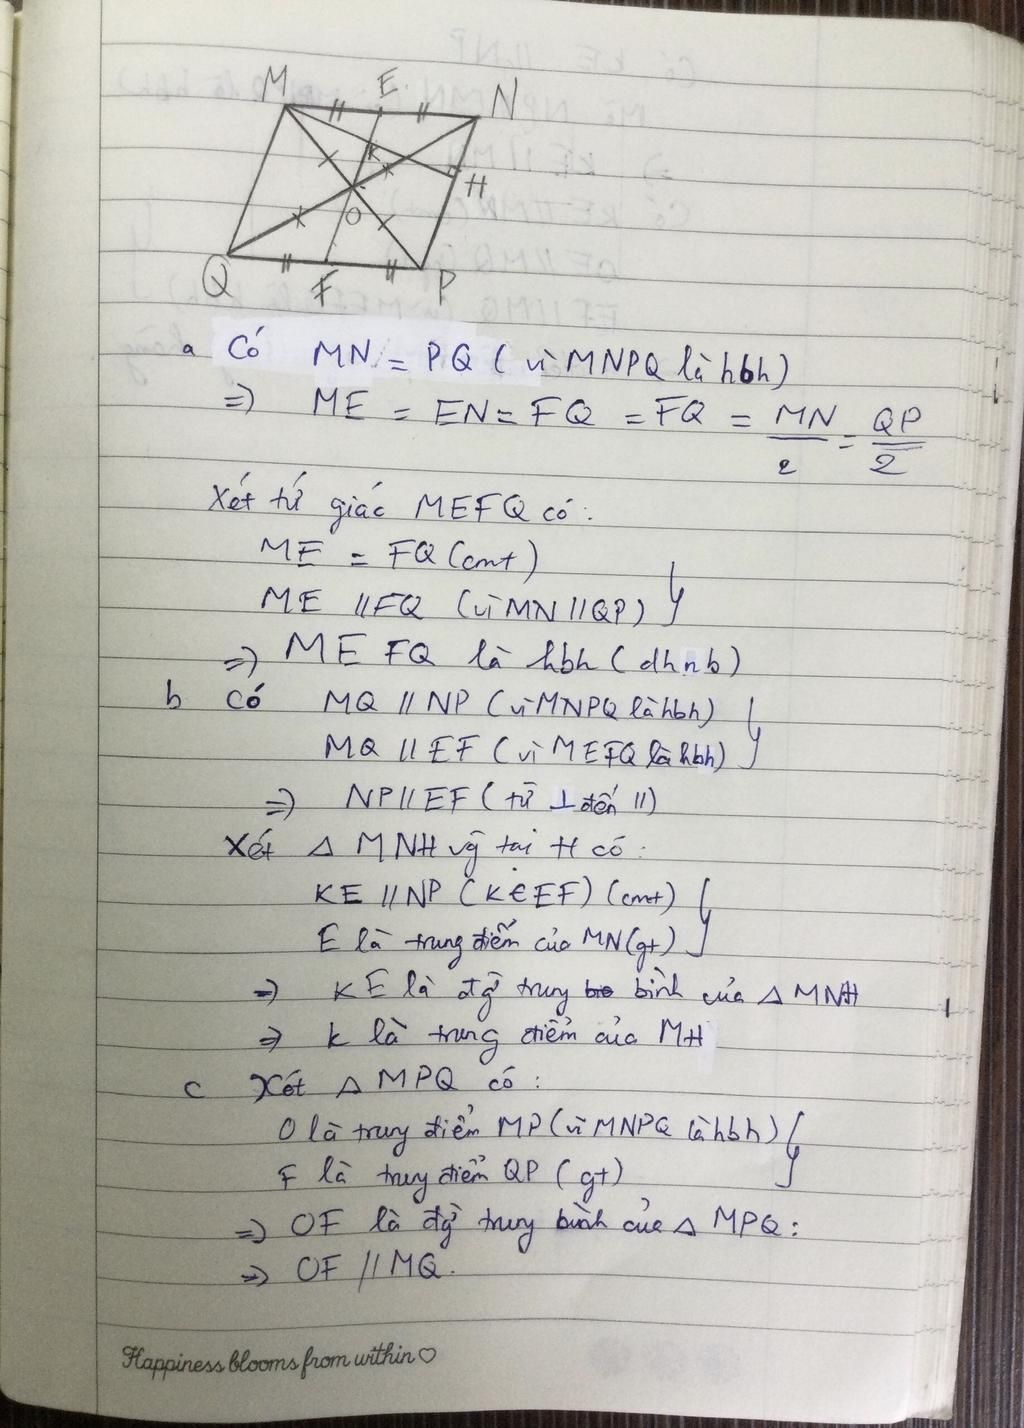 M E N
K
H
O
Q F P
a Có MN = PQ ( vì MNPQ là hbh)
=> ME = EN = FQ = FQ = MN/2 = QP/2
Xét tứ giác MEFQ có:
ME = FQ (cmt)
ME // FQ (vì MN // QP)
=> MEFQ là hbh (dhnb)
b Có MQ // NP (vì MNPQ là hbh)
MQ // EF (vì MEFQ là hbh)
=> NP // EF (từ ⊥ đến //)
Xét △ MNH vg̃ tại H có:
KE // NP (K ∈ EF) (cmt)
E là trung điểm của MN (gt)
=> KE là đg̀ trung bình của △ MNH
=> K là trung điểm của MH
c Xét △ MPQ có:
O là trung điểm MP (vì MNPQ là hbh)
F là trung điểm QP (gt)
=> OF là đg̀ trung bình của △ MPQ:
=> OF // MQ.
Happiness blooms from within♡